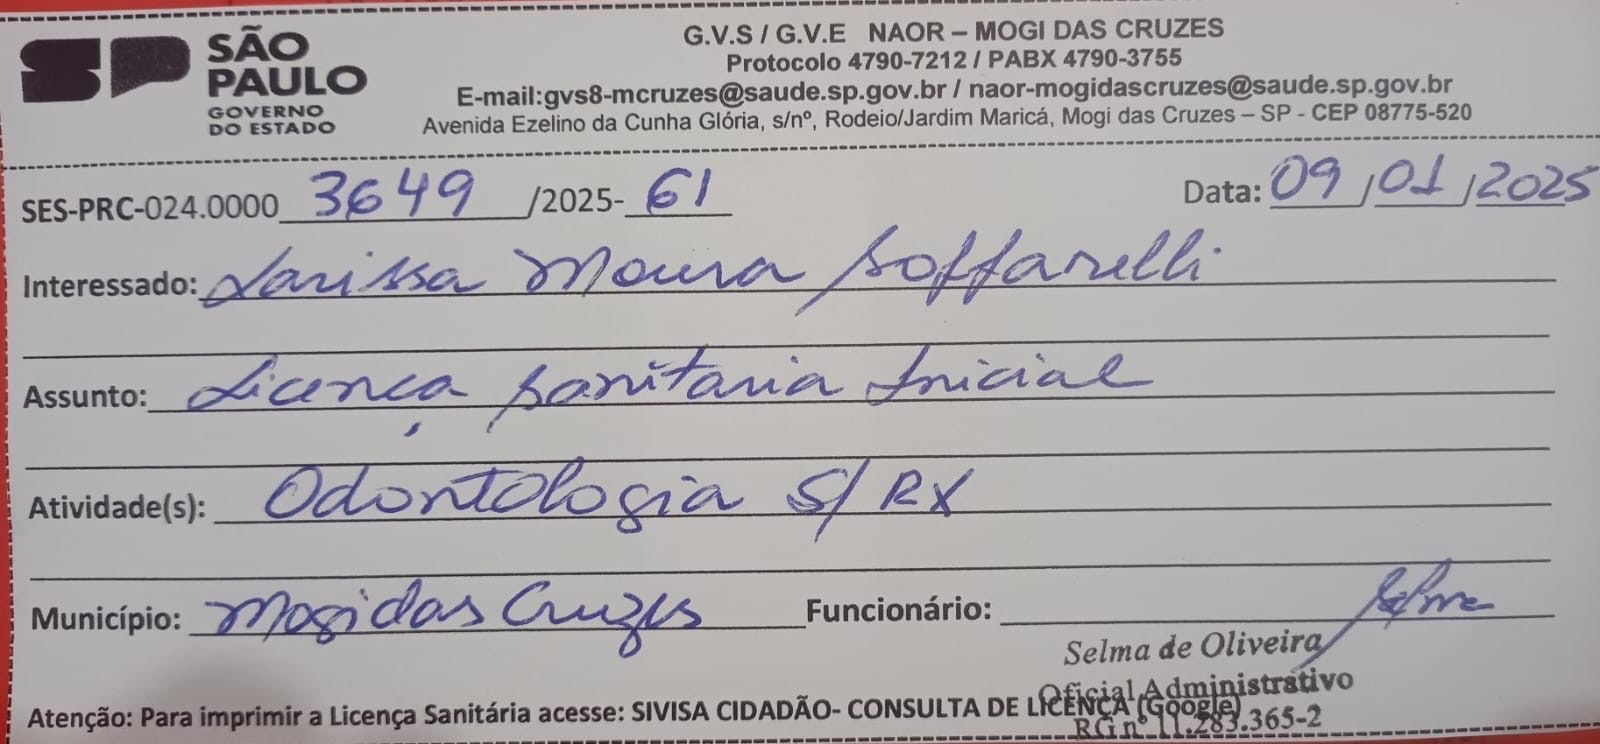 SÃO
PAULO
GOVERNO
DO ESTADO
G.V.S / G.V.E NAOR – MOGI DAS CRUZES
Protocolo 4790-7212 / PABX 4790-3755
E-mail:gvs8-mcruzes@saude.sp.gov.br / naor-mogidascruzes@saude.sp.gov.br
Avenida Ezelino da Cunha Glória, s/nº, Rodeio/Jardim Maricá, Mogi das Cruzes – SP - CEP 08775-520
SES-PRC-024.0000 3649 /2025- 61 Data: 09/01/2025
Interessado: Larissa Moura Soffarelli
Assunto: Licença Sanitaria Inicial
Atividade(s): Odontologia S/ RX
Município: Mogi das Cruzes Funcionário: Selma
Selma de Oliveira
Oficial Administrativo
Atenção: Para imprimir a Licença Sanitária acesse: SIVISA CIDADÃO- CONSULTA DE LICENÇA (Google)
RG nº 11.283.365-2